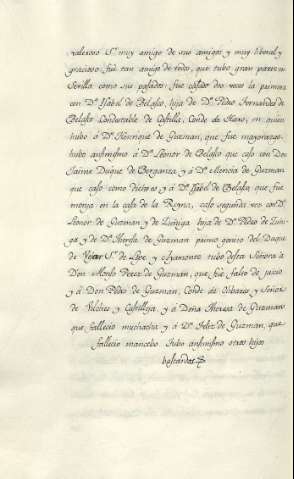 valeroso Sr. muy amigo de sus amigos, y muy liberal y
gracioso, fue tan amigo de todos, que tubo gran parte en
Sevilla como sus pasados: fue casado dos veces la primera
con Da. Isabel de Belasco, hija de Dn. Pedro Fernandez de
Belasco Condestable de Castilla, Conde de Haro, en quien
tubo á Dn. Henrique de Guzman, que fue mayorazgo.
tubo assimismo á Da. Leonor de Belasco que caso con Don
Jaime Duque de Berganza, y á Da. Mencia de Guzman
que caso como dicho es y á Da. Isabel de Belasco, que fue
monja en la casa de la Reyna, caso segunda vez con Da.
Leonor de Guzman y de Zuñiga hija de Dn. Pedro de Zuñi-
ga y de Da. Theresa de Guzman primo genito del Duque
de Vejar Sr. de Lepe y Ayamonte tubo desta Señora á
Don Alonso Perez de Guzman, que fue falto de juicio
y á Don Pedro de Guzman, Conde de Olibares, y Señor
de Vilches y Castilleja, y á Doña Theresa de Guzman
que fallecio muchacha y á Dn. Felix de Guzman, que
fallecio mancebo. Tubo assimismo otros hijos
bastardos